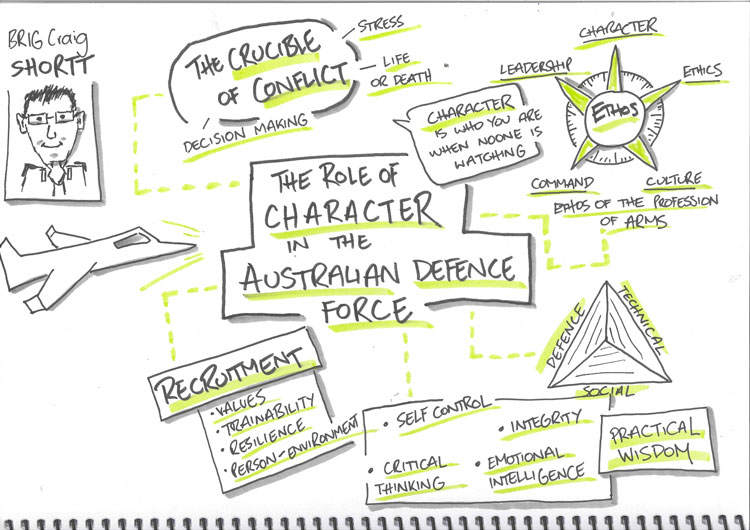 BRIG Craig
SHORTT
THE CRUCIBLE
OF CONFLICT
STRESS
LIFE
OR DEATH
DECISION MAKING
CHARACTER
IS WHO YOU ARE
WHEN NOONE IS
WATCHING
CHARACTER
LEADERSHIP
ETHICS
ETHOS
COMMAND
CULTURE
ETHOS OF THE PROFESSION
OF ARMS
THE ROLE OF
CHARACTER
IN THE
AUSTRALIAN DEFENCE
FORCE
DEFENCE
TECHNICAL
SOCIAL
RECRUITMENT
• VALUES
• TRAINABILITY
• RESILIENCE
• PERSON-ENVIRONMENT
• SELF CONTROL
• INTEGRITY
• CRITICAL
THINKING
• EMOTIONAL
INTELLIGENCE
PRACTICAL
WISDOM